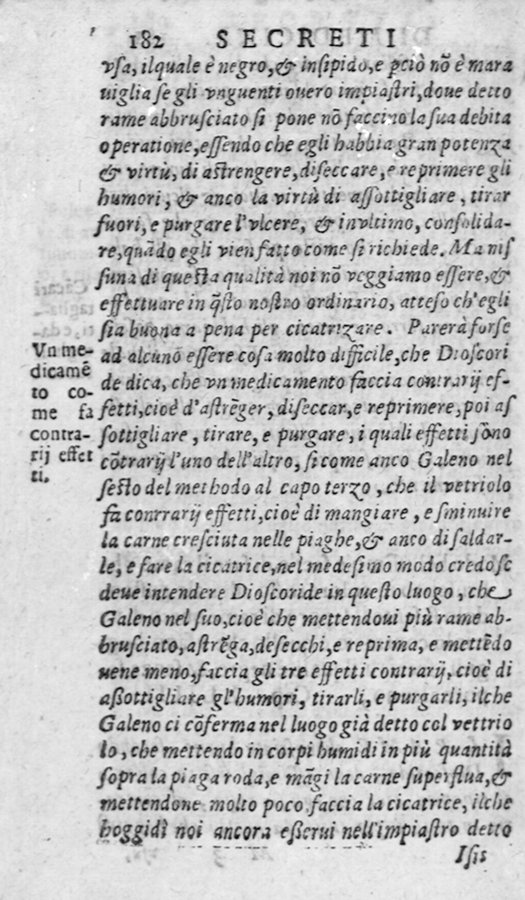 182 SECRETI
vſa, ilquale è negro, & inſipido, e pciò nõ è mara
uiglia ſe gli vnguenti ouero impiaſtri, doue detto
rame abbruſciato ſi pone nõ faccino la ſua debita
operatione, eſſendo che egli habbia gran potenza
& virtù, di aſtrengere, diſeccare, e reprimere gli
humori, & anco la virtù di aſſottigliare, tirar
fuori, e purgare l'vlcere, & invltimo, conſolida-
re, quãdo egli vien fatto come ſi richiede. Ma niſ
ſuna di queſta qualità noi nõ veggiamo eſſere, &
effettuare in q̃ſto noſtro ordinario, atteſo ch'egli
ſia buona a pena per cicatrizare. Parerà forſe
ad alcuno eſſere coſa molto difficile, che Dioſcori
de dica, che vn medicamento faccia contrarij ef-
fetti, cioè d'aſtrẽger, diſeccar, e reprimere, poi aſ
ſottigliare, tirare, e purgare, i quali effetti ſono
cõtrarij l'uno dell'altro, ſi come anco Galeno nel
ſeſto del methodo al capo terzo, che il vetriolo
fa conrrarij effetti, cioè di mangiare, e ſminuire
la carne creſciuta nelle piaghe, & anco di ſaldar-
le, e fare la cicatrice, nel medeſimo modo credoſe
deue intendere Dioſcoride in queſto luogo, che
Galeno nel ſuo, cioè che mettendoui più rame ab-
bruſciato, aſtrẽga, deſecchi, e reprima, e mettẽdo
uene meno, faccia gli tre effetti contrarij, cioè di
aßottigliare gl'humori, tirarli, e purgarli, ilche
Galeno ci cõferma nel luogo già detto col vettrio
lo, che mettendo in corpi humidi in più quantità
ſopra la piaga roda, e mãgi la carne ſuperflua, &
mettendone molto poco faccia la cicatrice, ilche
hoggidì noi ancora eſſcrui nell'impiaſtro detto
Iſis
Vn me-
dicamẽ
to co-
me fa
contra-
rij effet
ti.